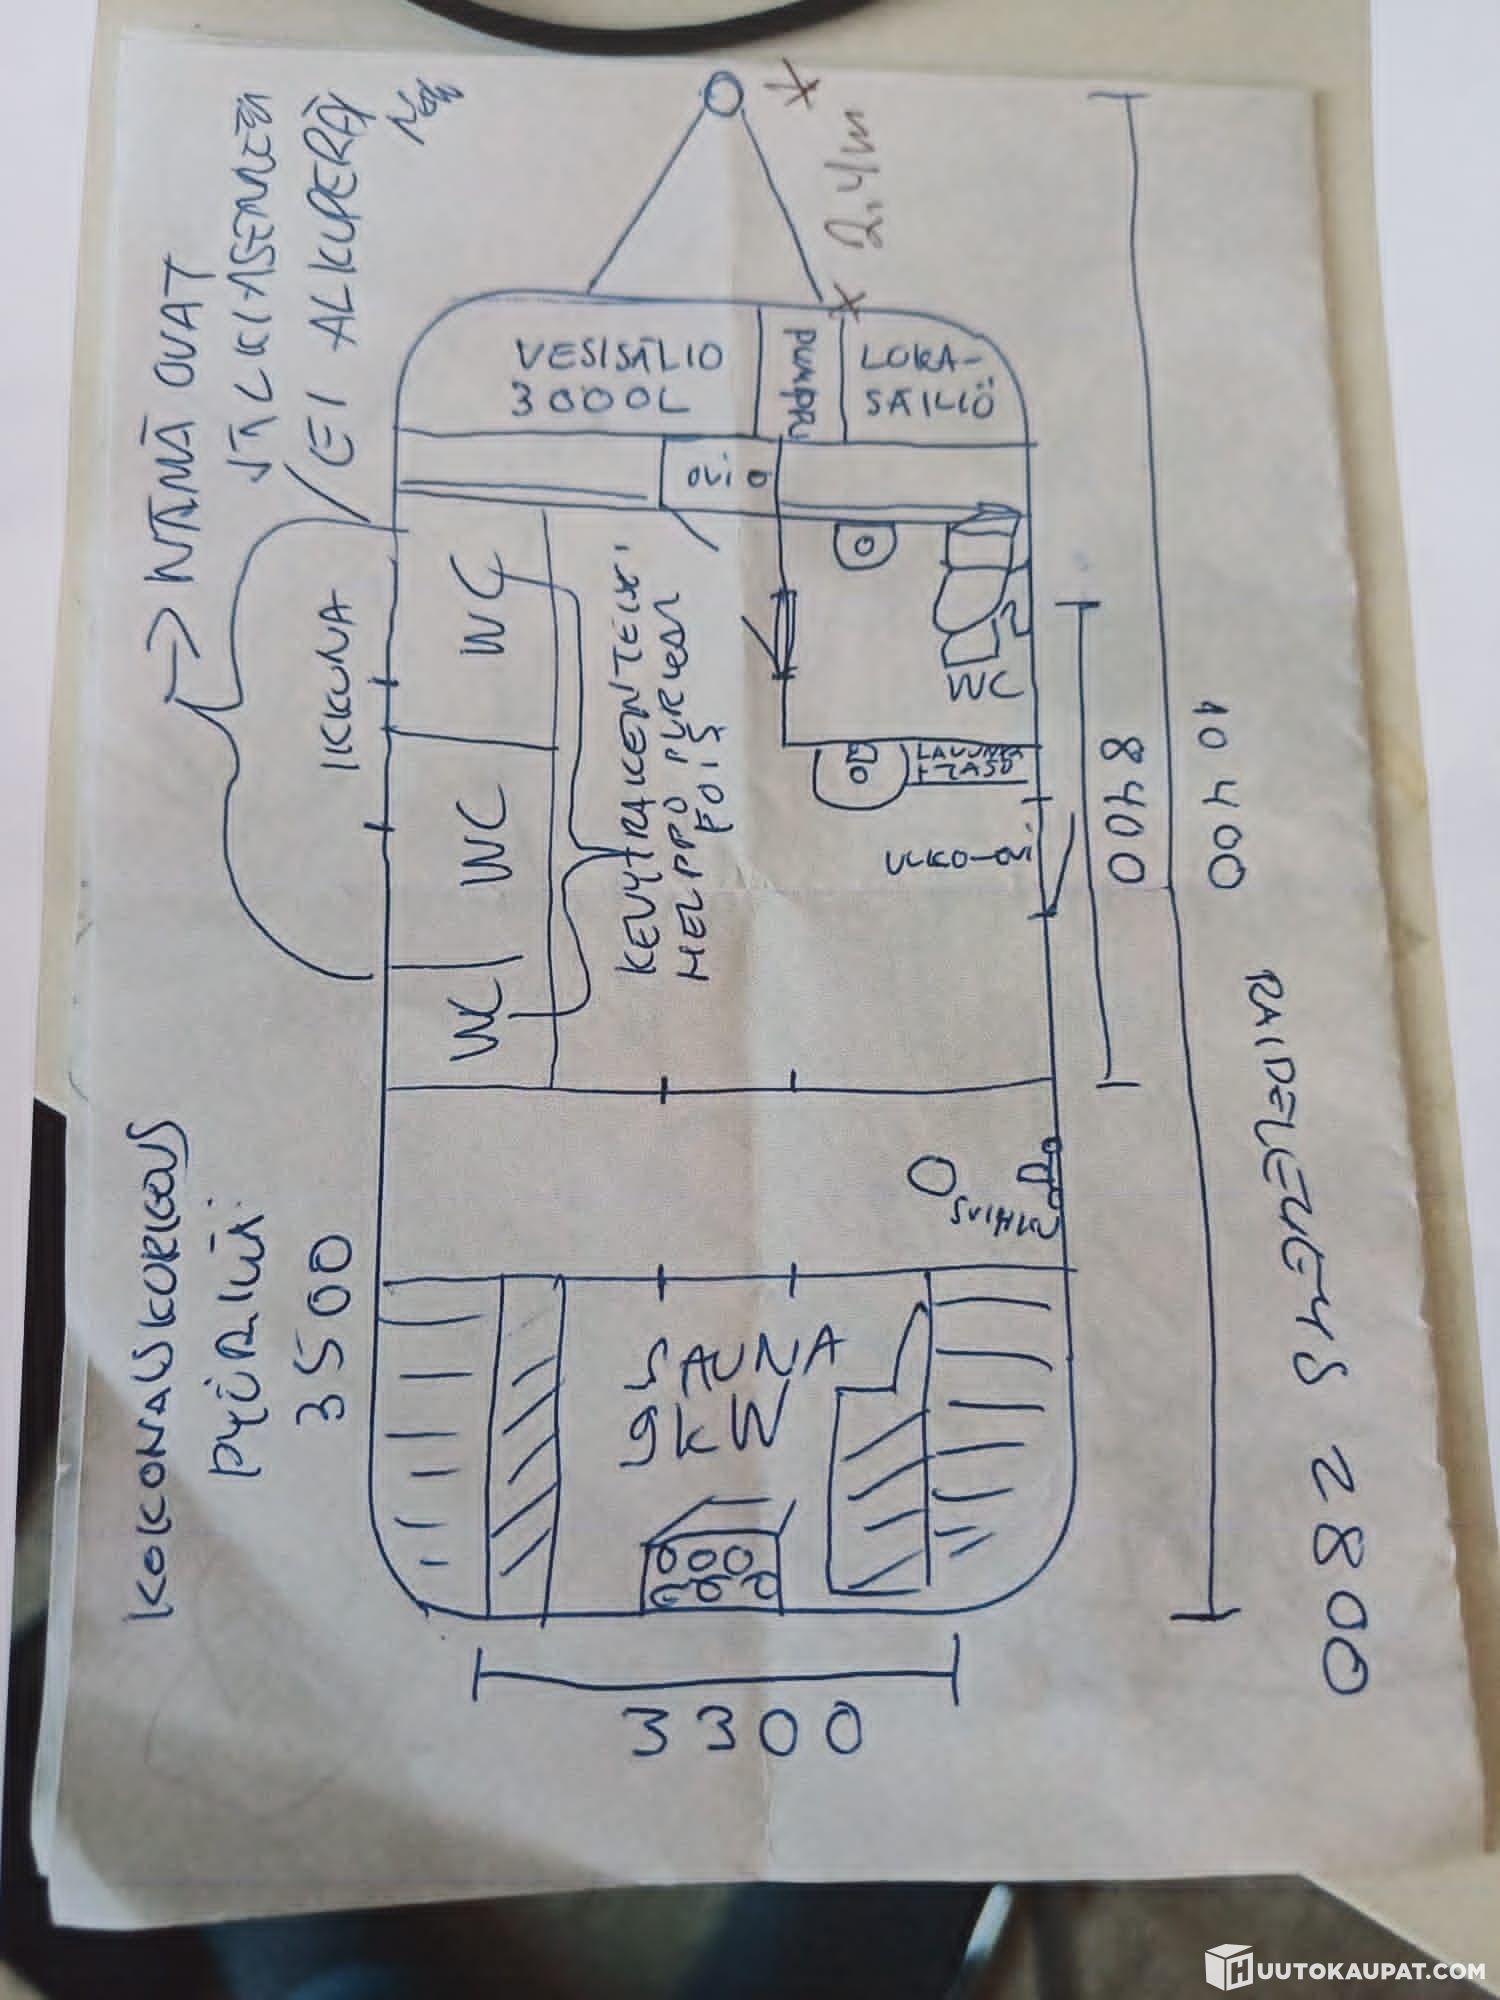 → NÄMÄ OVAT
JÄLKIASENNETTU
/EI ALKUPERÄ
2,4m
VESISÄLIO
3000L
PUMPPU
LOKA-
SÄILIÖ
OVI
IKKUNA
WC
WC
WC
KEVYTRAKENTEISET
HELPPO PURKAA
POIS
WC
LAVUAARI
+ TASO
ULKO-OVI
8400
10 400
SUIHKU
SAUNA
9 KW
KOKONAISKORKEUS
PYÖRILLÄ
3500
3300
RAIDELEVEYS 2800
HUUTOKAUPAT.COM